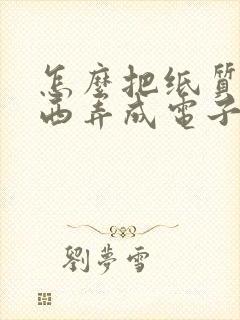 怎麼把纸質
西弄成電子
劉夢雪